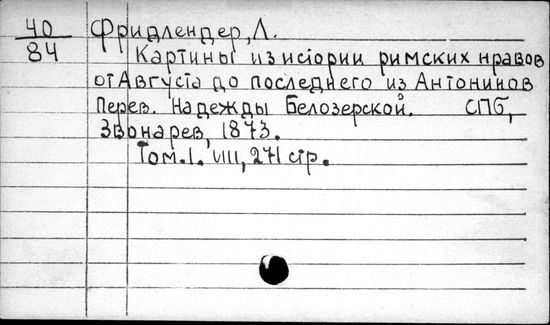 40 Фридлендер, Л.
84 Картины из истории римских нравов
от Августа до последнего из Антонинов
Перев. Надежды Белозерской. СПб,
Звонарев, 1873.
Том.1. VIII, 271 стр.